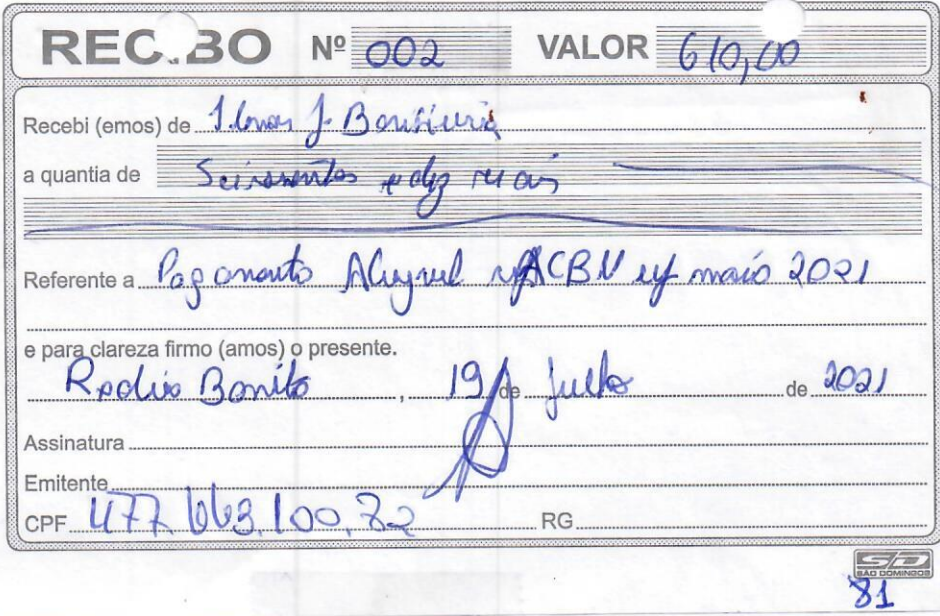 RECIBO Nº 002 VALOR 610,00
Recebi (emos) de J.
a quantia de Seissentos e dez reais
Referente a Pagamento Aluguel ACBV maio 2021
e para clareza firmo (amos) o presente.
Bonito, 19 de julho de 2021
Assinatura
Emitente
CPF 477.663.100.72 RG
SD
SÃO DOMINGOS
81